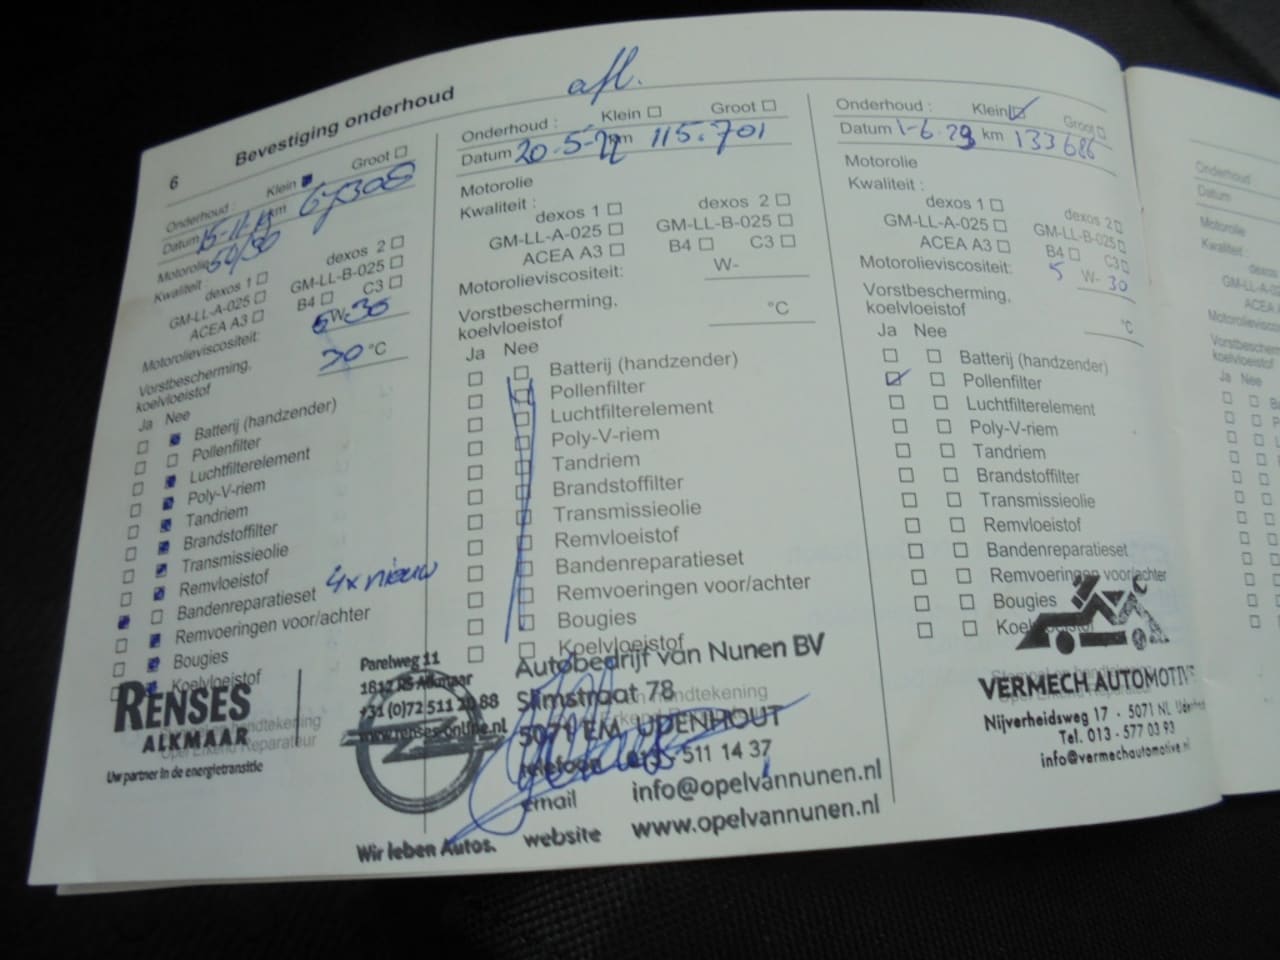 6 Bevestiging onderhoud
Onderhoud : Klein Groot
Datum km
Motorolie 50/30
Kwaliteit :
dexos 1 dexos 2
GM-LL-A-025 GM-LL-B-025
ACEA A3 B4 C3
Motorolieviscositeit: 5 W- 30
Vorstbescherming,
koelvloeistof °C
Ja Nee
Batterij (handzender)
Pollenfilter
Luchtfilterelement
Poly-V-riem
Tandriem
Brandstoffilter
Transmissieolie
Remvloeistof
Bandenreparatieset 4x nieuw
Remvoeringen voor/achter
Bougies
Koelvloeistof
RENSES
ALKMAAR
Uw partner in de energietransitie
Opel Erkend Reparateur
Parelweg 11
1812 RS Alkmaar
+31 (0)72 511 20 88
www.renses-online.nl
Wir leben Autos.
afl.
Onderhoud : Klein Groot
Datum 20-5-22 km 115.701
Motorolie
Kwaliteit :
dexos 1 dexos 2
GM-LL-A-025 GM-LL-B-025
ACEA A3 B4 C3
Motorolieviscositeit: W-
Vorstbescherming,
koelvloeistof °C
Ja Nee
Batterij (handzender)
Pollenfilter
Luchtfilterelement
Poly-V-riem
Tandriem
Brandstoffilter
Transmissieolie
Remvloeistof
Bandenreparatieset
Remvoeringen voor/achter
Bougies
Koelvloeistof
Autobedrijf van Nunen BV
Slimstraat 78
5071 EM UDENHOUT
telefoon 013- 511 14 37
email info@opelvannunen.nl
website www.opelvannunen.nl
Onderhoud : Klein Groot
Datum 1-6-23 km 133686
Motorolie
Kwaliteit :
dexos 1 dexos 2
GM-LL-A-025 GM-LL-B-025
ACEA A3 B4 C3
Motorolieviscositeit: 5 W- 30
Vorstbescherming,
koelvloeistof °C
Ja Nee
Batterij (handzender)
Pollenfilter
Luchtfilterelement
Poly-V-riem
Tandriem
Brandstoffilter
Transmissieolie
Remvloeistof
Bandenreparatieset
Remvoeringen voor/achter
Bougies
VERMECH AUTOMOTIVE
Nijverheidsweg 17 - 5071 NL
Tel. 013 - 577 03 93
info@vermechautomotive.nl
Onderhoud
Datum
Motorolie
Kwaliteit :
Vorstbescherming,
koelvloeistof
Ja Nee